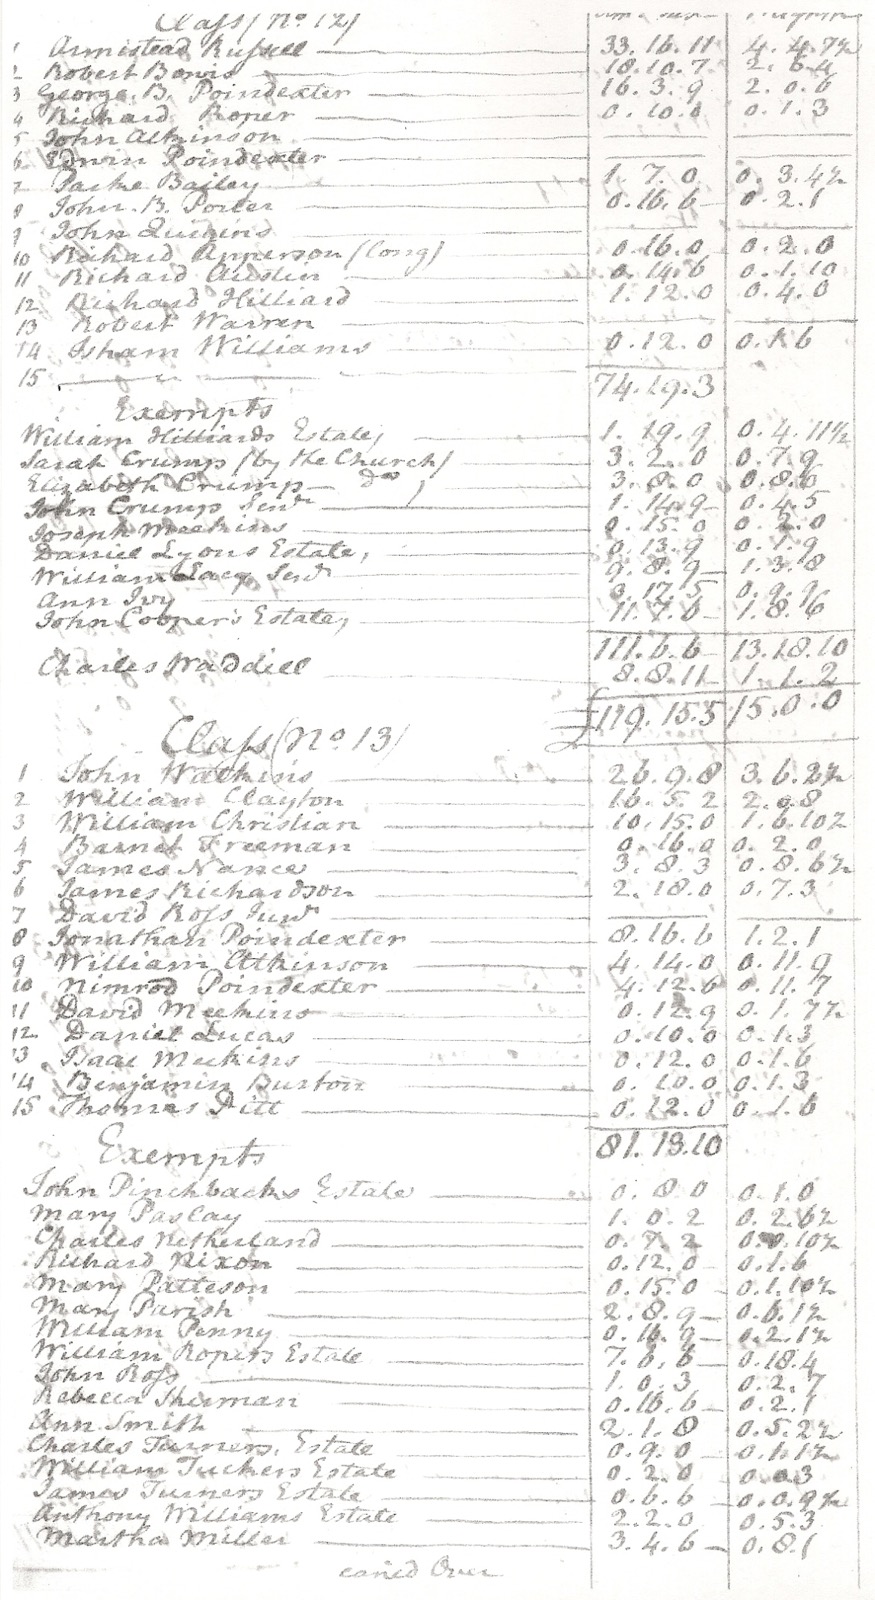 Class (No. 12)
1 Armistead Russell 33.16.11 4.4.7½
2 Robert Bowis 18.10.7 2.6.4
3 George. B. Poindexter 16.3.9 2.0.6
4 Richard Roper 0.10.0 0.1.3
5 John Atkinson
6 Edwin Poindexter
7 Parke Bailey 1.7.0 0.3.4½
8 John. B. Porter 0.16.6 0.2.1
9 John
10 Richard Apperson (long) 0.16.0 0.2.0
11 Richard Austin 0.14.6 0.1.10
12 Richard Hilliard 1.12.0 0.4.0
13 Robert Warren
14 Isham Williams 0.12.0 0.1.6
15
74.19.3
Exempts
William Hilliards Estate, 1.19.9 0.4.11½
Sarah Crump (by the Church) 3.2.0 0.7.9
Elizabeth Crump — do ) 3.8.0 0.8.6
John Crump Senr 1.14.9 0.4.5
Joseph Meekins 0.15.0 0.2.0
Daniel Lyons Estate, 0.13.9 0.1.9
William Lacy Senr 9.8.9 1.3.8
Ann Ivy 3.17.5 0.9.9
John Cooper's Estate, 11.7.6 1.8.6
111.6.6 13.18.10
Charles Waddill 8.8.11 1.1.2
£119.15.5 15.0.0
Class (No. 13)
1 John Watkins 26.9.8 3.6.2½
2 William Clayton 16.5.2 2.0.8
3 William Christian 10.15.0 1.6.10½
4 Barnet Freeman 0.16.0 0.2.0
5 James Nance 3.8.3 0.8.6½
6 James Richardson 2.18.0 0.7.3
7 David Ross Junr
8 Jonathan Poindexter 8.16.6 1.2.1
9 William Atkinson 4.14.0 0.11.9
10 Nimrod Poindexter 4.12.6 0.11.7
11 David Meekins 0.12.9 0.1.7½
12 Daniel Lucas 0.10.0 0.1.3
13 Isaac Meekins 0.12.0 0.1.6
14 Benjamin Burton 0.10.0 0.1.3
15 Thomas Pitt 0.12.0 0.1.6
81.19.10
Exempts
John Pinchbacks Estate 0.8.0 0.1.0
Mary Paslay 1.0.2 0.2.6½
Charles Netherland 0.7.2 0.0.10½
Richard Nixon 0.12.0 0.1.6
Mary Patteson 0.15.0 0.1.10½
Mary Parish 2.8.9 0.6.1½
William Penny 0.16.9 0.2.1½
William Ropers Estate 7.6.6 0.18.4
John Ross 1.0.3 0.2.7
Rebecca Sherman 0.16.6 0.2.1
Ann Smith 2.1.8 0.5.2½
Charles Turners, Estate 0.9.0 0.1.1½
William Tuckers Estate 0.2.0 0.0.3
James Turners Estate 0.6.6 0.0.9¾
Anthony Williams Estate 2.2.0 0.5.3
Martha Miller 3.4.6 0.8.1
caried Over